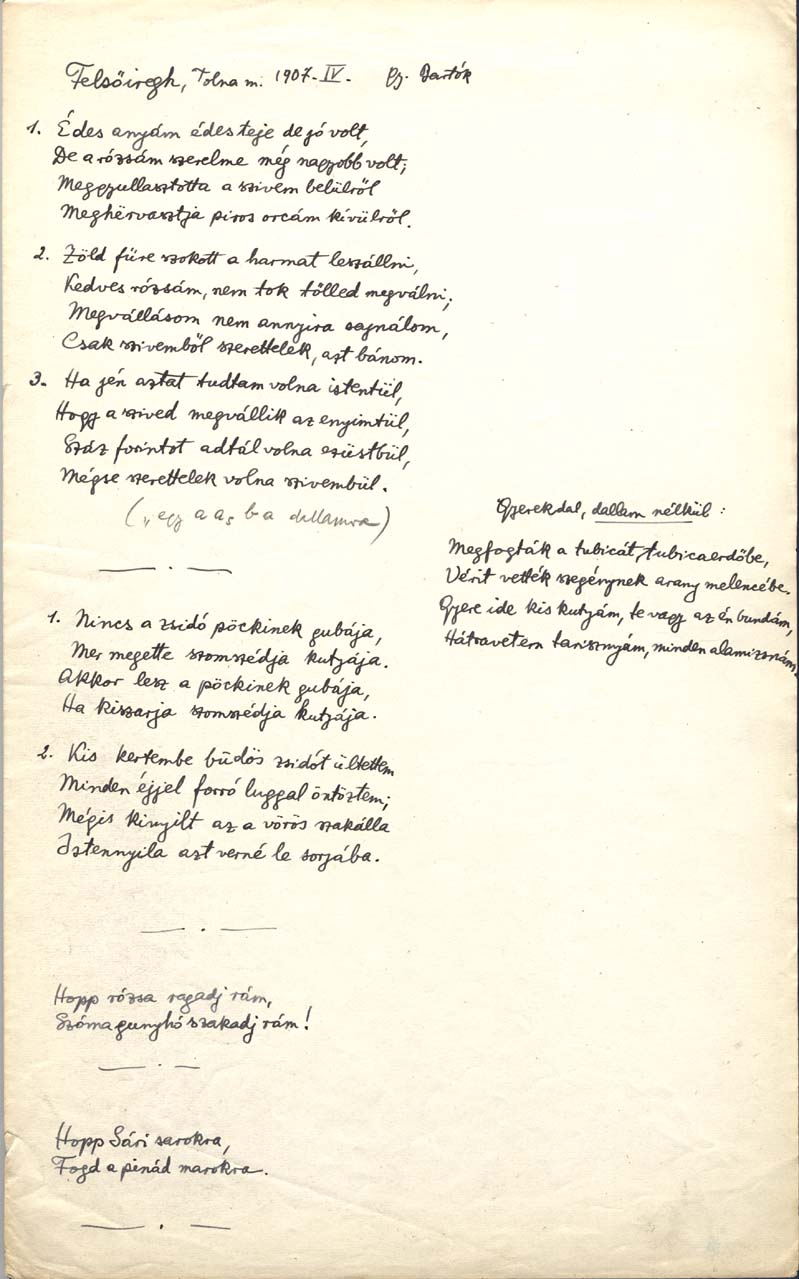 Felsőiregh, Tolna m. 1907. IV. Gy. Bartók
1. Édes anyám édes teje de jó volt,
De a rózsám szerelme még nagyobb volt;
Meggyullasztotta a szivem belülről
Meghërvasztja piros orcám kívülről.
2. Zöld fűre szokott a harmat leszállni,
Kedves rózsám, nem tok tőlled megválni;
Megvállásom nem annyira sajnálom,
Csak szivemből szerettelek, azt bánom.
3. Ha jén aztat tudtam volna istentül,
Hogy a szived megvállik az enyimtül,
Száz forintot adtál volna ezüstbül,
Mégse szerettelek volna szivembül.
(„egy a a, b a dallamra)
1. Nincs a zsidó pöckinek gubája,
Mer megette szomszédja kutyája.
Akkor lesz a pöckinek gubája,
Ha kiszarja szomszédja kutyája.
2. Kis kertembe büdös zsidót ültettem
Minden éjjel forró luggal öntöztem;
Mégis kinyilt az a vörös szakálla
Istennyila azt verné le sorjába.
Hopp rózsa ragadj rám,
Szóma gunyhó szakadj rám!
Hopp Sári sarokra,
Fogd a pinád marokra.
Gyerekdal, dallam nélkül:
Megfogták a tubicát, tubicaerdőbe,
Vérit vették szegénynek arany melencébe.
Gyere ide kis kutyám, te vagy az én bundám,
Hátravetem tarisznyám, minden alamizsnám.